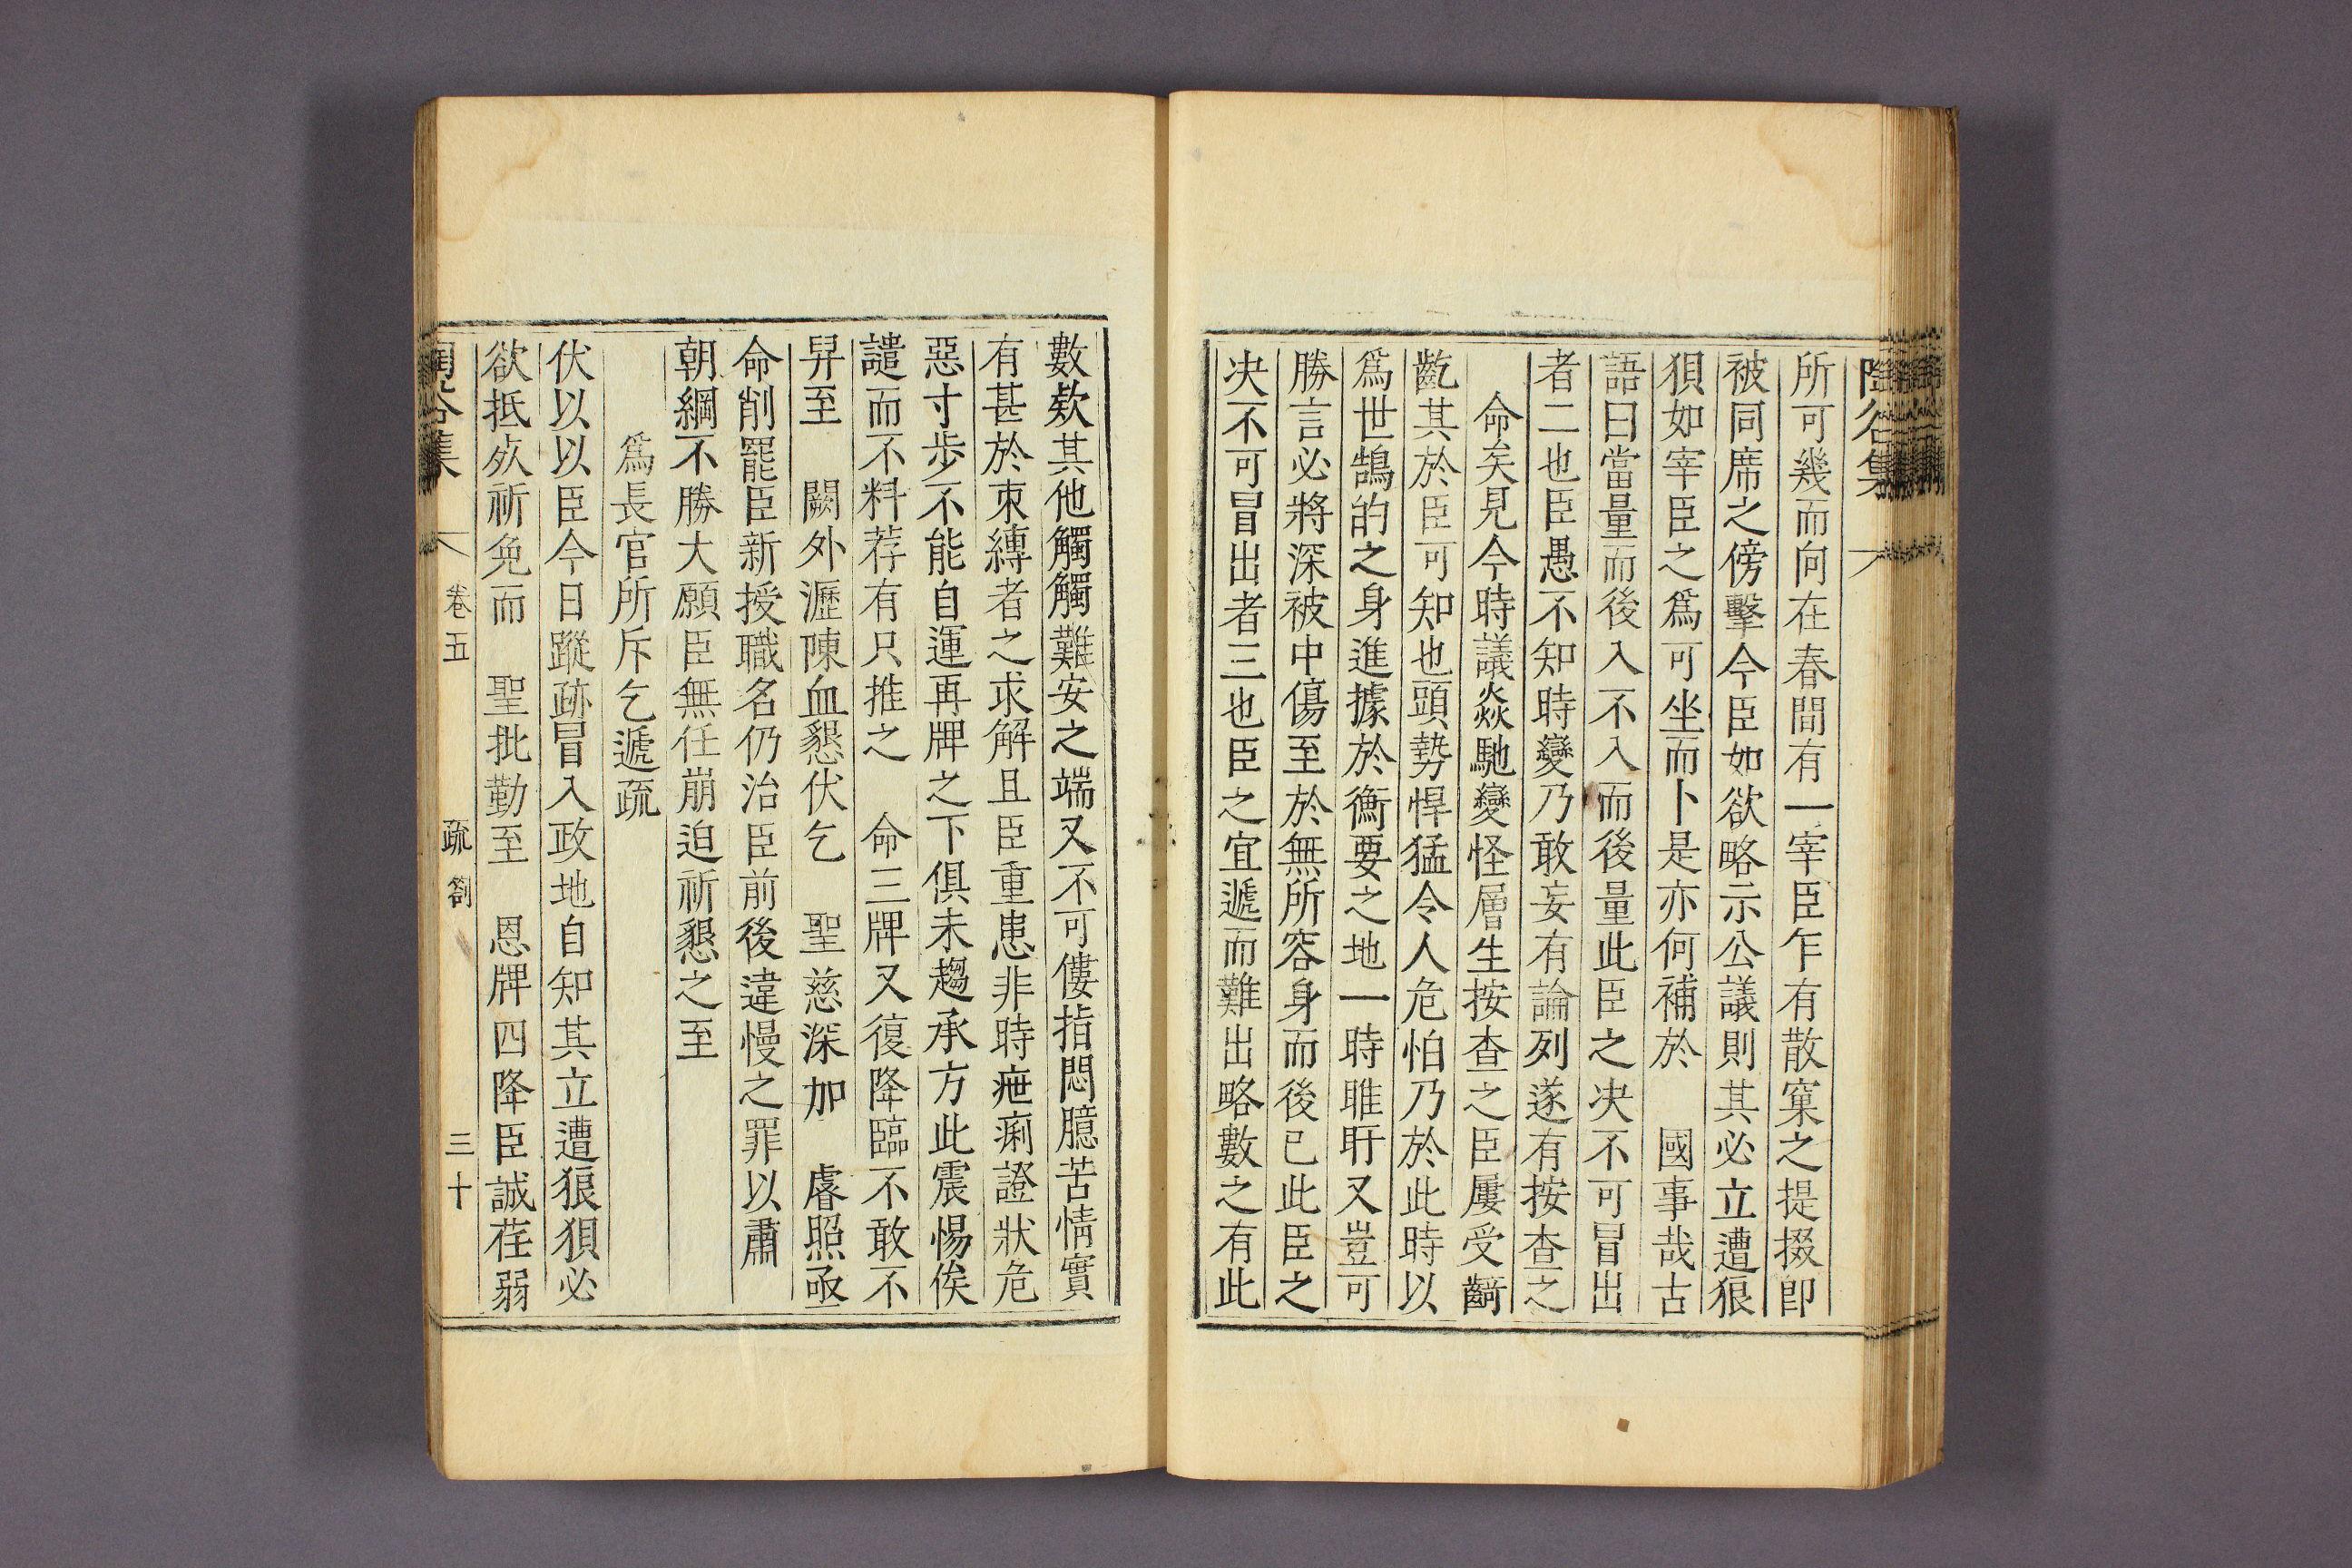 陶谷集
所可幾而向在春間有一宰臣乍有散窠之提掇卽
被同席之傍擊今臣如欲略示公議則其必立遭狼
狽如宰臣之爲可坐而卜是亦何補於 國事哉古
語曰當量而後入不入而後量此臣之决不可冒出
者二也臣愚不知時變乃敢妄有論列遂有按查之
命矣見今時議焱馳變怪層生按查之臣屢受齮
齕其於臣可知也頭勢悍猛令人危怕乃於此時以
爲世鵠的之身進據於衡要之地一時睢盱又豈可
勝言必將深被中傷至於無所容身而後已此臣之
决不可冒出者三也臣之宜遞而難出略數之有此
數欵其他觸觸難安之端又不可僂指悶臆苦情實
有甚於束縛者之求解且臣重患非時疪痢證狀危
惡寸步不能自運再牌之下俱未趨承方此震惕俟
譴而不料荐有只推之 命三牌又復降臨不敢不
舁至 闕外瀝陳血懇伏乞 聖慈深加 睿照亟
命削罷臣新授職名仍治臣前後違慢之罪以肅
朝綱不勝大願臣無任崩迫祈懇之至
爲長官所斥乞遞疏
伏以以臣今日蹤跡冒入政地自知其立遭狼狽必
欲抵死祈免而 聖批勤至 恩牌四降臣誠荏弱
陶谷集 卷五 疏劄 三十